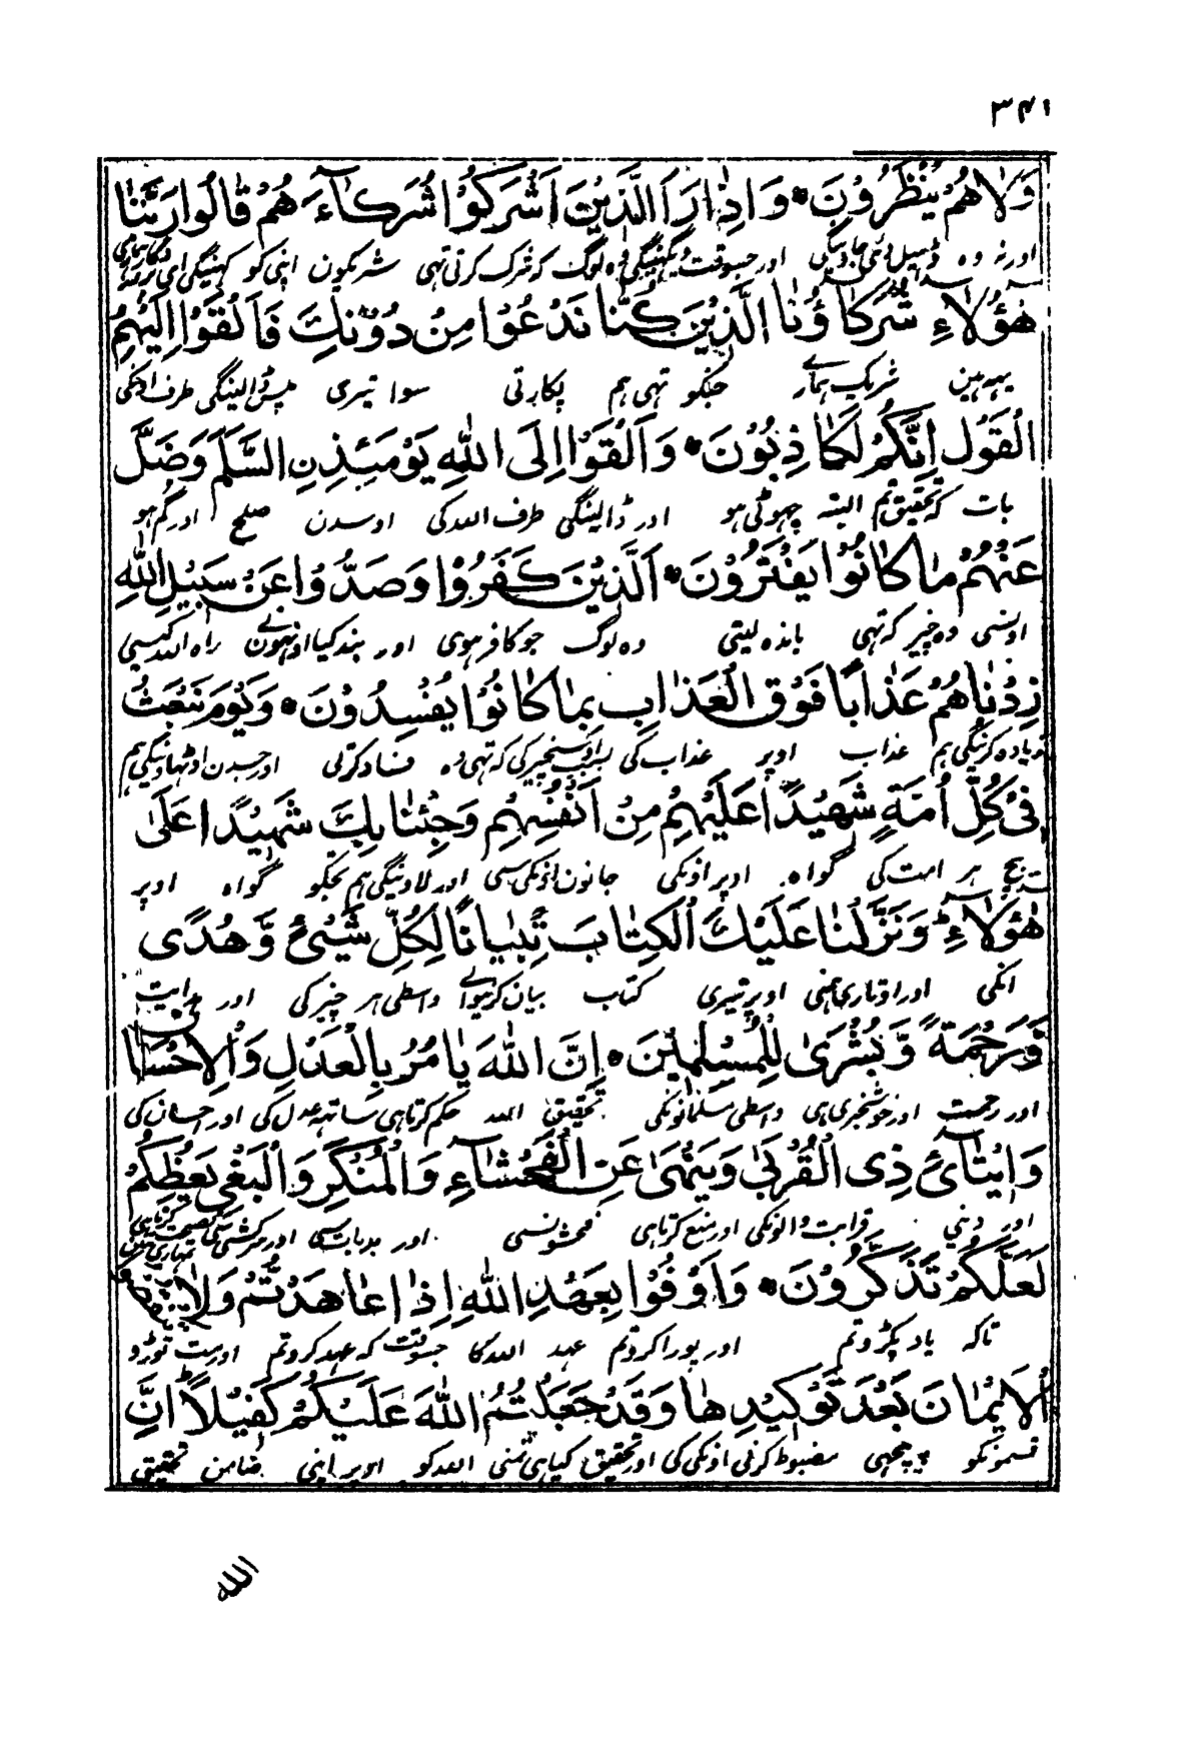 ۳۴۱
وَلَاهُمْ يُنْظَرُوْنَ وَاِذَا رَاَ الَّذِيْنَ اَشْرَكُوْا شُرَكَآءَ هُمْ قَالُوا رَبَّنَا
اور نہ وہ ڈھیل دئی جاوینگی اور جسوقت دیکھینگی وہ لوگ کہ شرک کرتی تہی شریکون اپنی کو کہینگی ای
هٰٓؤُلَآءِ شُرَكَآؤُنَا الَّذِيْنَ كُنَّا نَدْعُوْا مِنْ دُوْنِكَ فَاَلْقَوْا اِلَيْهِمُ
یہہ ہین شریک ہمارے جنکو تہی ہم پکارتی سوا تیری پس ڈالینگی طرف اونکی
الْقَوْلَ اِنَّكُمْ لَكَاذِبُوْنَ وَاَلْقَوْا اِلَى اللّٰهِ يَوْمَئِذِنِ السَّلَمَ وَضَلَّ
بات کہ تحقیق تم البتہ جہوٹی ہو اور ڈالینگی طرف اللہ کی اوسدن صلح اور گم ہو
عَنْهُمْ مَا كَانُوْا يَفْتَرُوْنَ اَلَّذِيْنَ كَفَرُوْا وَصَدُّوْا عَنْ سَبِيْلِ اللّٰهِ
اونسی وہ چیز کہ تہی باندہ لیتی وہ لوگ جو کافر ہوی اور بند کیا اونہونے راہ اللہ کیسی
زِدْنَاهُمْ عَذَابًا فَوْقَ الْعَذَابِ بِمَا كَانُوْا يُفْسِدُوْنَ وَيَوْمَ نَبْعَثُ
زیادہ کرینگی ہم عذاب اوپر عذاب کی بسبب اوسچیز کی کہ تہی وہ فساد کرتی اور جسدن اوٹہاوینگی ہم
فِیْ كُلِّ اُمَّةٍ شَهِيْدًا عَلَيْهِمْ مِنْ اَنْفُسِهِمْ وَجِئْنَا بِكَ شَهِيْدًا عَلٰى
بیچ ہر امت کی گواہ اوپر اونکی جانون اونکی سی اور لاوینگی ہم تجکو گواہ اوپر
هٰٓؤُلَآءِ وَنَزَّلْنَا عَلَيْكَ الْكِتَابَ تِبْيَانًا لِكُلِّ شَیْءٍ وَّهُدًى
انکی اور اوتاری ہمنی اوپر تیری کتاب بیان کرنیوالے واسطی ہر چیز کی اور ہدایت
وَّرَحْمَةً وَّبُشْرٰى لِلْمُسْلِمِيْنَ اِنَّ اللّٰهَ يَامُرُ بِالْعَدْلِ وَالْاِحْسَانِ
اور رحمت اور خوشخبری ہی واسطی مسلمانونکی تحقیق اللہ حکم کرتا ہی ساتہہ عدل کی اور احسان کی
وَاِيْتَآئِ ذِی الْقُرْبٰى وَيَنْهٰى عَنِ الْفَحْشَآءِ وَالْمُنْكَرِ وَالْبَغْیِ يَعِظُكُمْ
اور دینی قرابت والونکی اور منع کرتا ہی فحشونسی اور بدبات اور سرکشی سی نصیحت کرتا ہی
لَعَلَّكُمْ تَذَكَّرُوْنَ وَاَوْفُوْا بِعَهْدِ اللّٰهِ اِذَا عَاهَدْتُّمْ وَلَا
تاکہ یاد پکڑو تم اور پورا کرو تم عہد اللہ کا جسوقت کہ عہد کرو تم اور مت توڑو
الْاَيْمَانَ بَعْدَ تَوْكِيْدِهَا وَقَدْ جَعَلْتُمُ اللّٰهَ عَلَيْكُمْ كَفِيْلًا اِنَّ
قسمونکو پیچہی مضبوط کرنی اونکی کی اور تحقیق کیا ہی تمنی اللہ کو اوپر اپنی ضامن تحقیق
الله